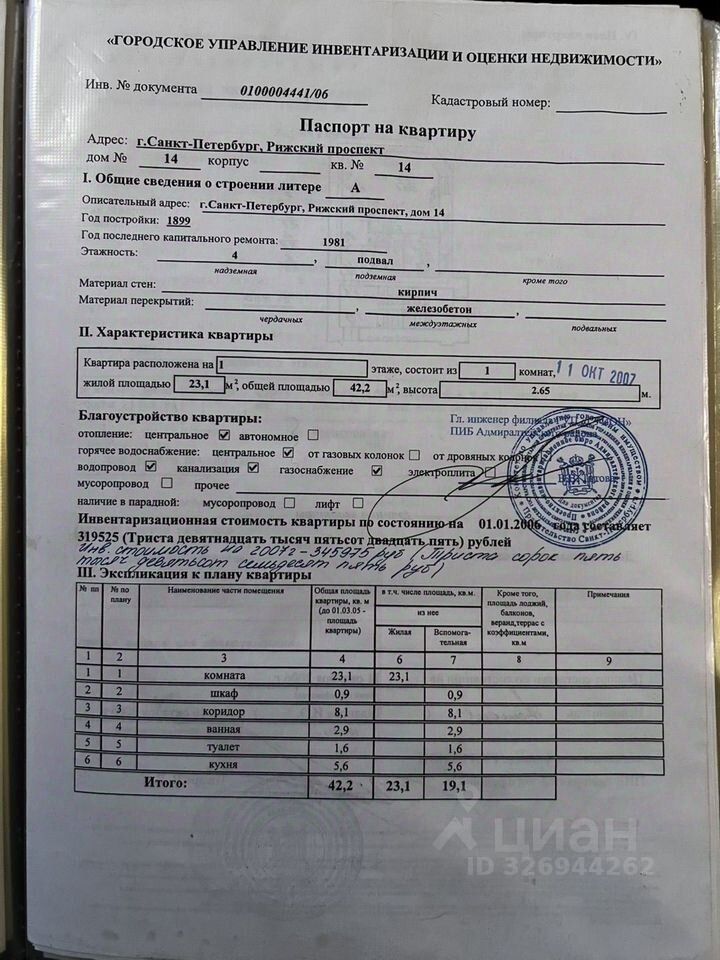 «ГОРОДСКОЕ УПРАВЛЕНИЕ ИНВЕНТАРИЗАЦИИ И ОЦЕНКИ НЕДВИЖИМОСТИ»
Инв. № документа 0100004441/06 Кадастровый номер:
Паспорт на квартиру
Адрес: г.Санкт-Петербург, Рижский проспект
дом № 14 корпус кв. № 14
I. Общие сведения о строении литере А
Описательный адрес: г.Санкт-Петербург, Рижский проспект, дом 14
Год постройки: 1899
Год последнего капитального ремонта: 1981
Этажность: 4 , подвал ,
надземная подземная кроме того
Материал стен: кирпич
Материал перекрытий: , железобетон ,
чердачных междуэтажных подвальных
II. Характеристика квартиры
Квартира расположена на 1 этаже, состоит из 1 комнат, 11 ОКТ 2007
жилой площадью 23,1 м², общей площадью 42,2 м², высота 2.65 м.
Благоустройство квартиры:
Гл. инженер
ПИБ
отопление: центральное автономное
горячее водоснабжение: центральное от газовых колонок от дровяных колонок
водопровод канализация газоснабжение электроплита
мусоропровод прочее
наличие в парадной: мусоропровод лифт
Инвентаризационная стоимость квартиры по состоянию на 01.01.2006 года составляет
319525 (Триста девятнадцать тысяч пятьсот двадцать пять) рублей
Инв. стоимость на 2007г - 345975 руб (Триста сорок пять
тысяч девятьсот семьдесят пять руб)
III. Экспликация к плану квартиры
№ пп № по плану Наименование части помещения Общая площадь квартиры, кв. м (до 01.03.05 - площадь квартиры) в т.ч. числе площадь, кв.м. Кроме того, площадь лоджий, балконов, веранд,террас с коэффициентами, кв.м Примечания
из нее
Жилая Вспомога-тельная
1 2 3 4 6 7 8 9
1 1 комната 23,1 23,1
2 2 шкаф 0,9 0,9
3 3 коридор 8,1 8,1
4 4 ванная 2,9 2,9
5 5 туалет 1,6 1,6
6 6 кухня 5,6 5,6
Итого: 42,2 23,1 19,1
циан
ID 326944262